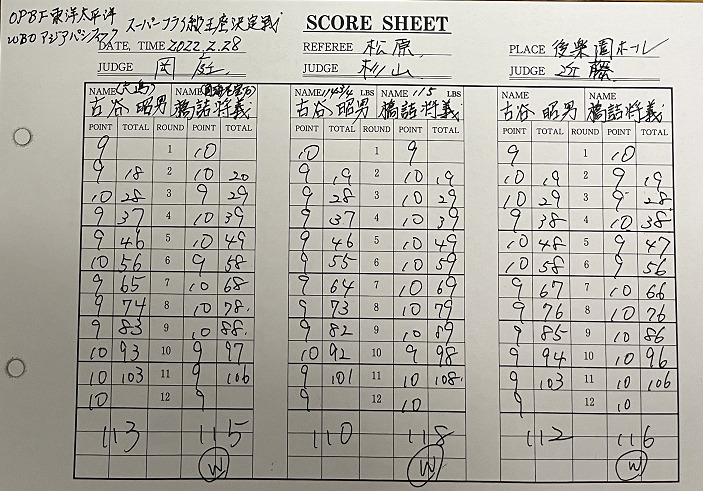 OPBF東洋太平洋 スーパーフライ級王座決定戦 SCORE SHEET
WBOアジアパシフィック
DATE, TIME 2022.2.28 REFEREE 松原 PLACE 後楽園ホール
JUDGE 岡庭 JUDGE 杉山 JUDGE 近藤
NAME (大鵬) NAME NAME 114 3/4 LBS NAME 115 LBS NAME NAME
古谷昭男 橋詰将義 古谷昭男 橋詰将義 古谷昭男 橋詰将義
POINT TOTAL ROUND POINT TOTAL POINT TOTAL ROUND POINT TOTAL POINT TOTAL ROUND POINT TOTAL
9 1 10 10 1 9 9 1 10
9 18 2 10 20 9 19 2 10 19 10 19 2 9 19
10 28 3 9 29 9 28 3 10 29 10 29 3 9 28
9 37 4 10 39 9 37 4 10 39 9 38 4 10 38
9 46 5 10 49 9 46 5 10 49 10 48 5 9 47
10 56 6 9 58 9 55 6 10 59 10 58 6 9 56
9 65 7 10 68 9 64 7 10 69 9 67 7 10 66
9 74 8 10 78 9 73 8 10 79 9 76 8 10 76
9 83 9 10 88 9 82 9 10 89 9 85 9 10 86
10 93 10 9 97 10 92 10 9 98 9 94 10 10 96
10 103 11 9 106 9 101 11 10 108 9 103 11 10 106
10 12 9 9 12 10 9 12 10
113 115 110 118 112 116
W W W